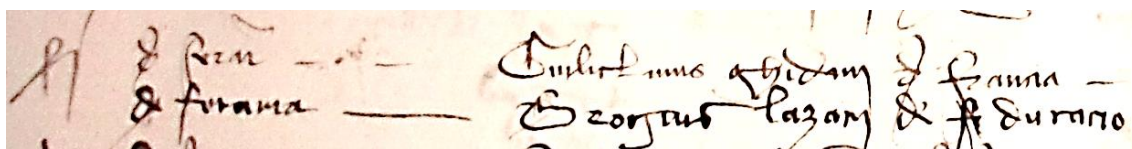 de ferar — Guilielmus ghidani de francia —
de feraria — Georgius lazari de duracio